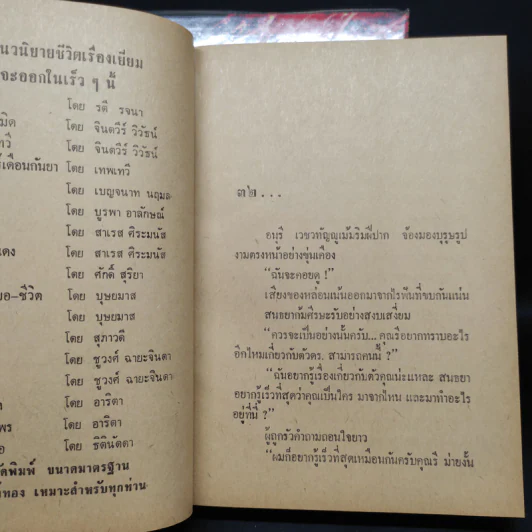 นวนิยายชีวิตเรื่องเยี่ยม
จะออกในเร็ว ๆ นี้
โดย รตี รจนา
มิต โดย จินตวีร์ วิวัธน์
ทวี โดย จินตวีร์ วิวัธน์
เดือนกันยา โดย เทพเทวี
โดย เบญจนาท นฤมล
โดย บูรพา อาลักษณ์
โดย สาเรศ ศิระมนัส
แดง โดย สาเรศ ศิระมนัส
โดย ศักดิ์ สุริยา
อ-ชีวิต โดย บุษยมาส
โดย บุษยมาส
โดย สุภาวดี
โดย ชูวงศ์ ฉายะจินดา
โดย ชูวงศ์ ฉายะจินดา
โดย อาริตา
พร โดย อาริตา
อ โดย ธิตินัดดา
ดพิมพ์ ขนาดมาตรฐาน
ทอง เหมาะสำหรับทุกท่าน
๓๒...
อนุรี เวชวทัญญูเม้มริมฝีปาก จ้องมองบุรุษรูป
งามตรงหน้าอย่างขุ่นเคือง
“ฉันจะคอยดู !”
เสียงของหล่อนเน้นออกมาจากไรฟันที่ขบกันแน่น
สนธยาก้มศีรษะรับอย่างสงบเสงี่ยม
“ควรจะเป็นอย่างนั้นครับ... คุณรีอยากทราบอะไร
อีกไหมเกี่ยวกับตัวดร. สามารถคนนี้ ?”
“ฉันอยากรู้เรื่องเกี่ยวกับตัวคุณน่ะแหละ สนธยา
อยากรู้เร็วที่สุดว่าคุณเป็นใคร มาจากไหน และมาทำอะไร
อยู่ที่นี่ ?”
ผู้ถูกรัวคำถามถอนใจยาว
“ผมก็อยากรู้เร็วที่สุดเหมือนกันครับคุณรี ม่ายงั้น